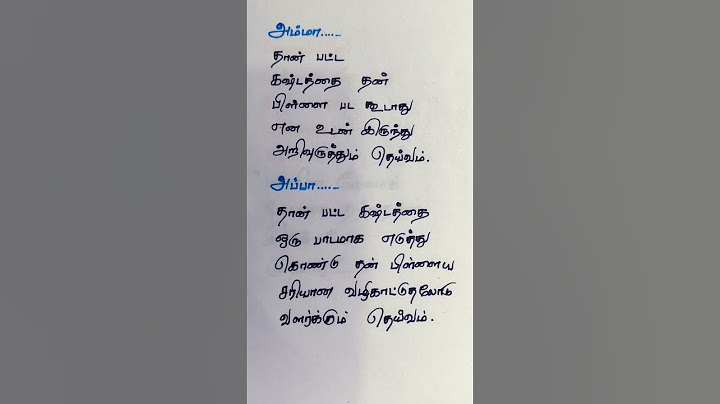 அம்மா.....
தான் பட்ட
கஷ்டத்தை தன்
பிள்ளை பட கூடாது
என உடன் இருந்து
அறிவுருத்தும் தெய்வம்.
அப்பா.....
தான் பட்ட கஷ்டத்தை
ஒரு பாடமாக எடுத்து
கொண்டு தன் பிள்ளைய
சரியான வழிகாட்டுதலோடு
வளர்க்கும் தெய்வம்.